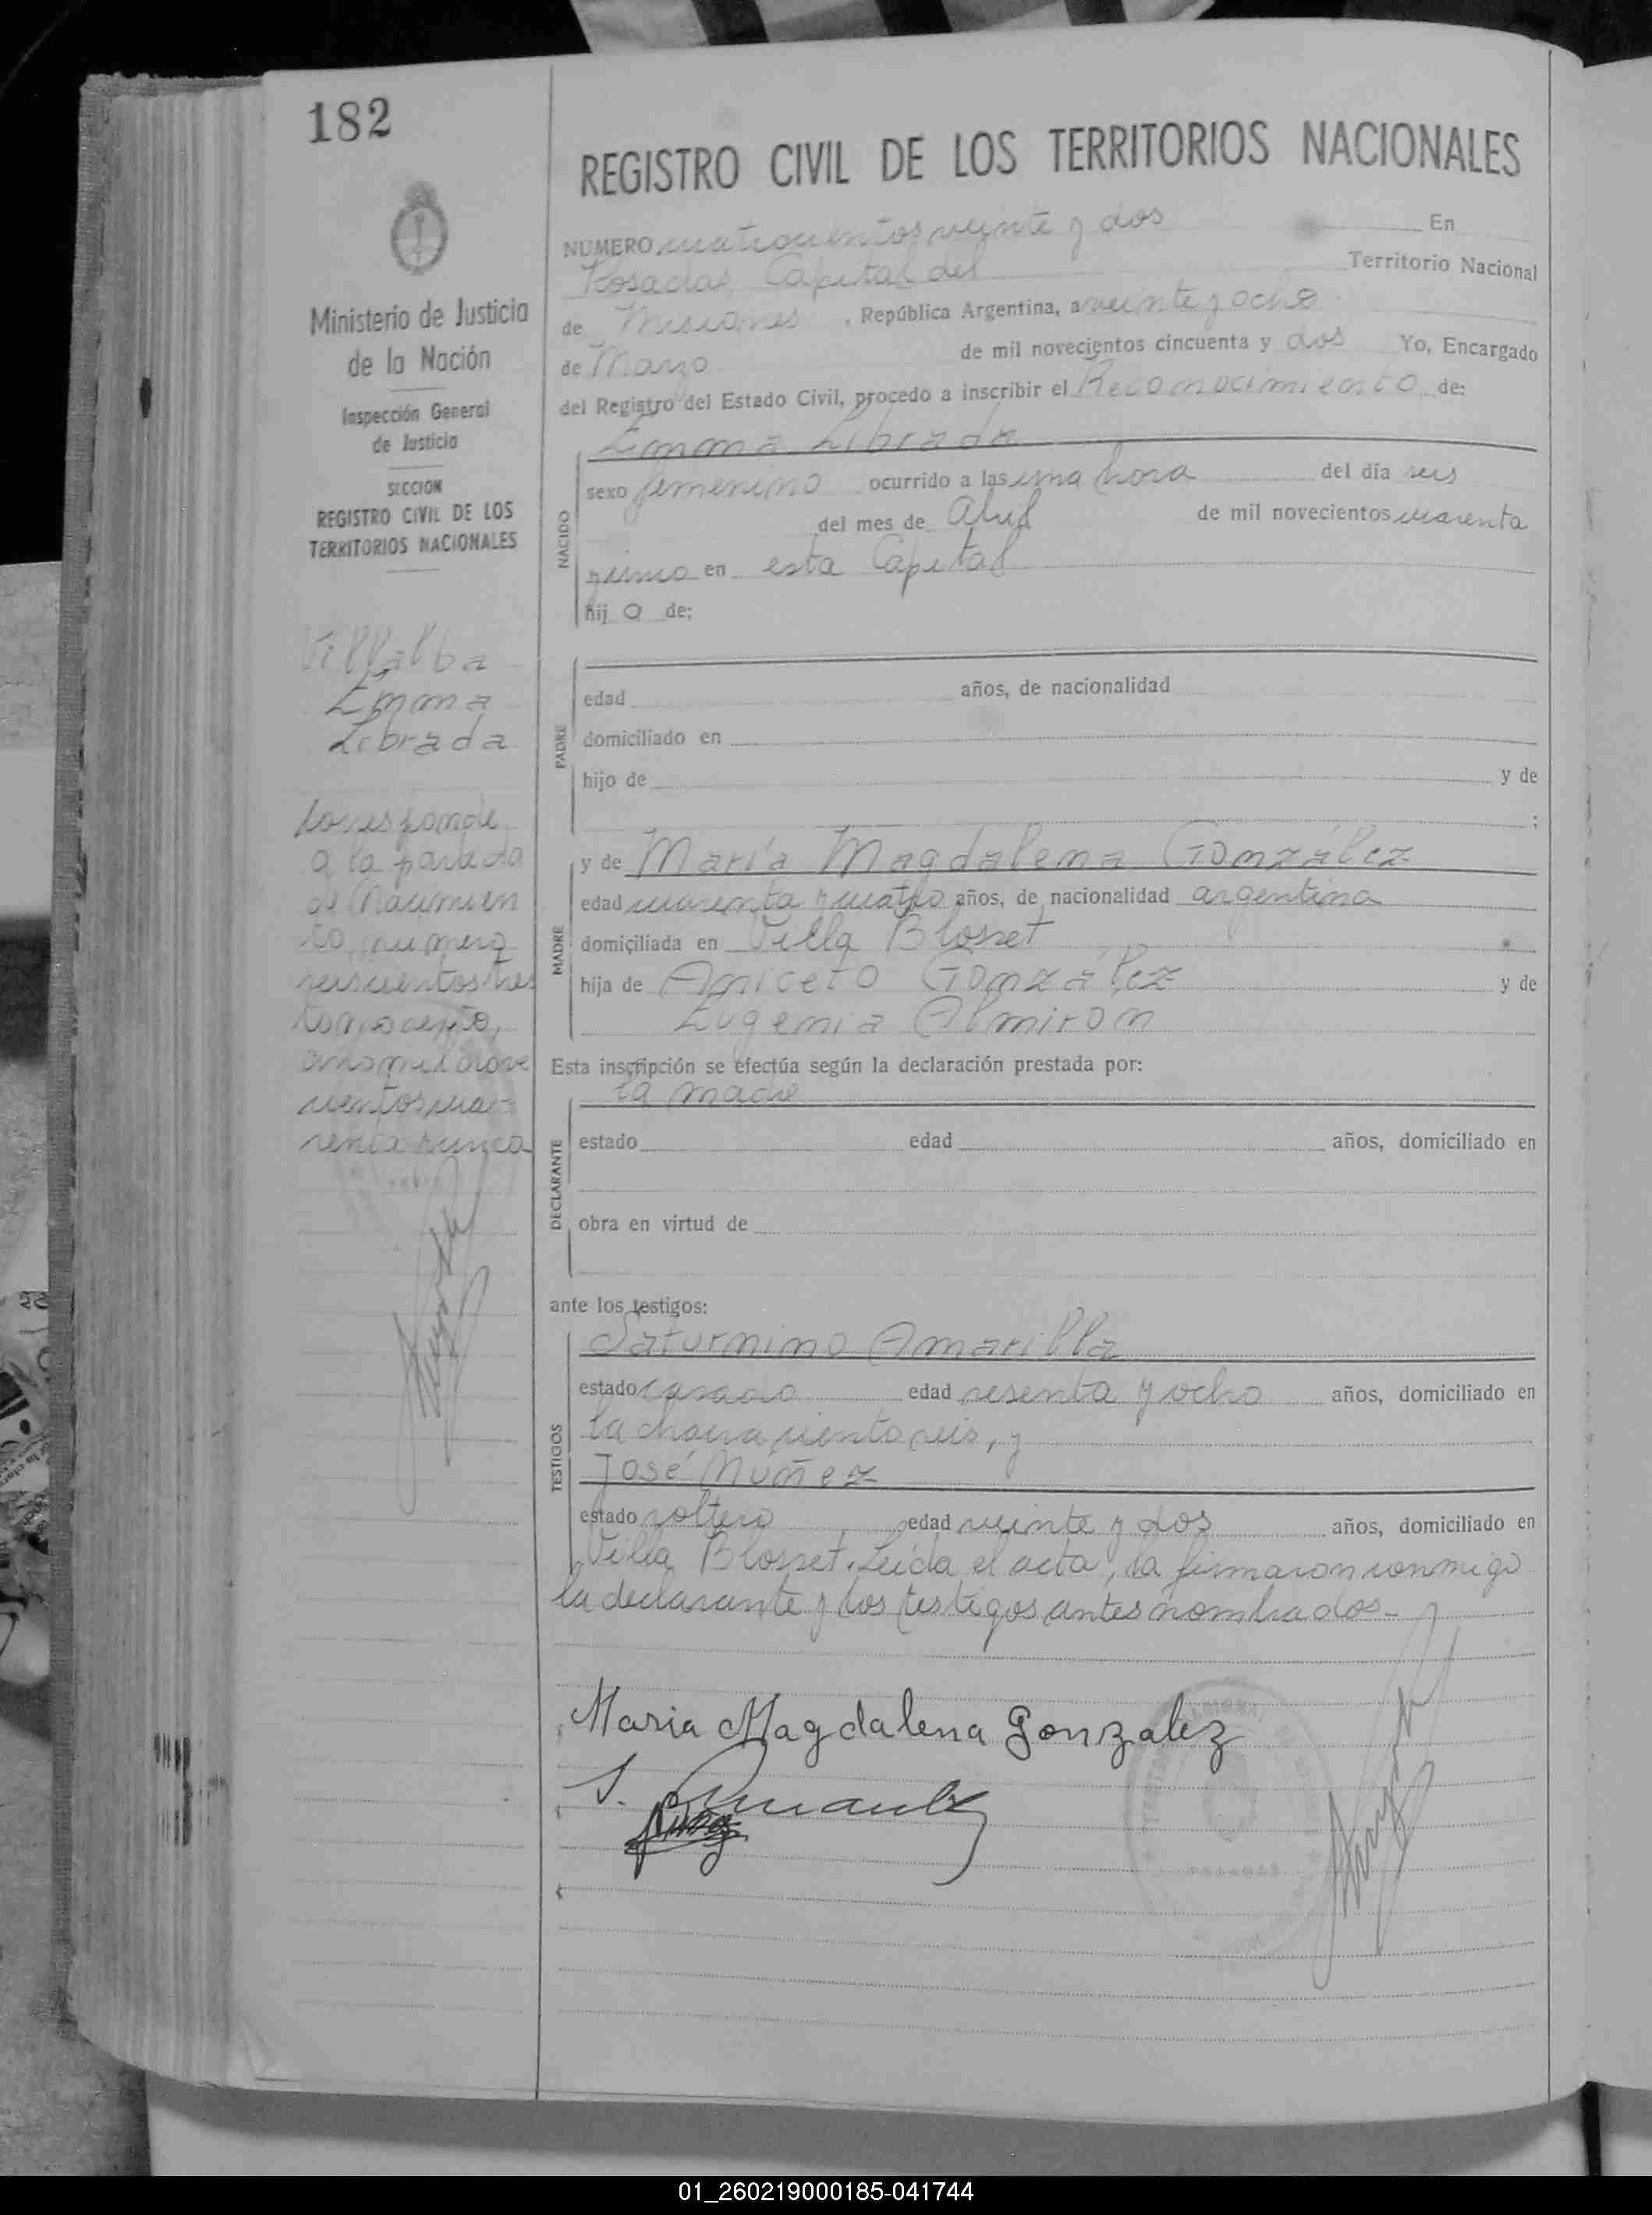 182
REGISTRO CIVIL DE LOS TERRITORIOS NACIONALES
Ministerio de Justicia
de la Nación
Inspección General
de Justicia
SECCION
REGISTRO CIVIL DE LOS
TERRITORIOS NACIONALES
Villalba
Emma
Librada
Corresponde
a la partida
de Nacimien
to, numero
seiscientos tres
tomo cento,
ano mil nove
cientos cua-
renta y cinco
NUMERO cuatrocientos veinte y dos En
Posadas, Capital del Territorio Nacional
de Misiones , República Argentina, a veinte y ocho
de Marzo de mil novecientos cincuenta y dos Yo, Encargado
del Registro del Estado Civil, procedo a inscribir el Reconocimiento de:
NACIDO
Emma Librada
sexo femenino ocurrido a las una hora del día seis
del mes de Abril de mil novecientos cuarenta
y cinco en esta Capital
hij a de:
PADRE
edad años, de nacionalidad
domiciliado en
hijo de y de
;
MADRE
y de María Magdalena González
edad cuarenta y cuatro años, de nacionalidad argentina
domiciliada en Villa Blosset
hija de Aniceto González y de
Eugenia Almiron
Esta inscripción se efectúa según la declaración prestada por:
DECLARANTE
la madre
estado edad años, domiciliado en
obra en virtud de
ante los testigos:
TESTIGOS
Saturnino Amarilla
estado casado edad sesenta y ocho años, domiciliado en
la chacra ciento seis, y
José Núñez
estado soltero edad veinte y dos años, domiciliado en
Villa Blosset. Leída el acta, la firmaron conmigo
la declarante y los testigos antes nombrados-
Maria Magdalena Gonzalez
S.
01_260219000185-041744